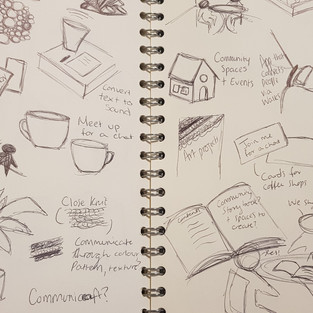 Convert
text to
Sound
Meet up
for a chat
Close Knit
Communicate
through colour,
Pattern, texture
Communicraft?
Community
Spaces
+ Events
App that
connects
people
via
Walks
Art project
Join me
for a chat
Cards for
coffee shops
Community
story book?
+ spaces to
create?